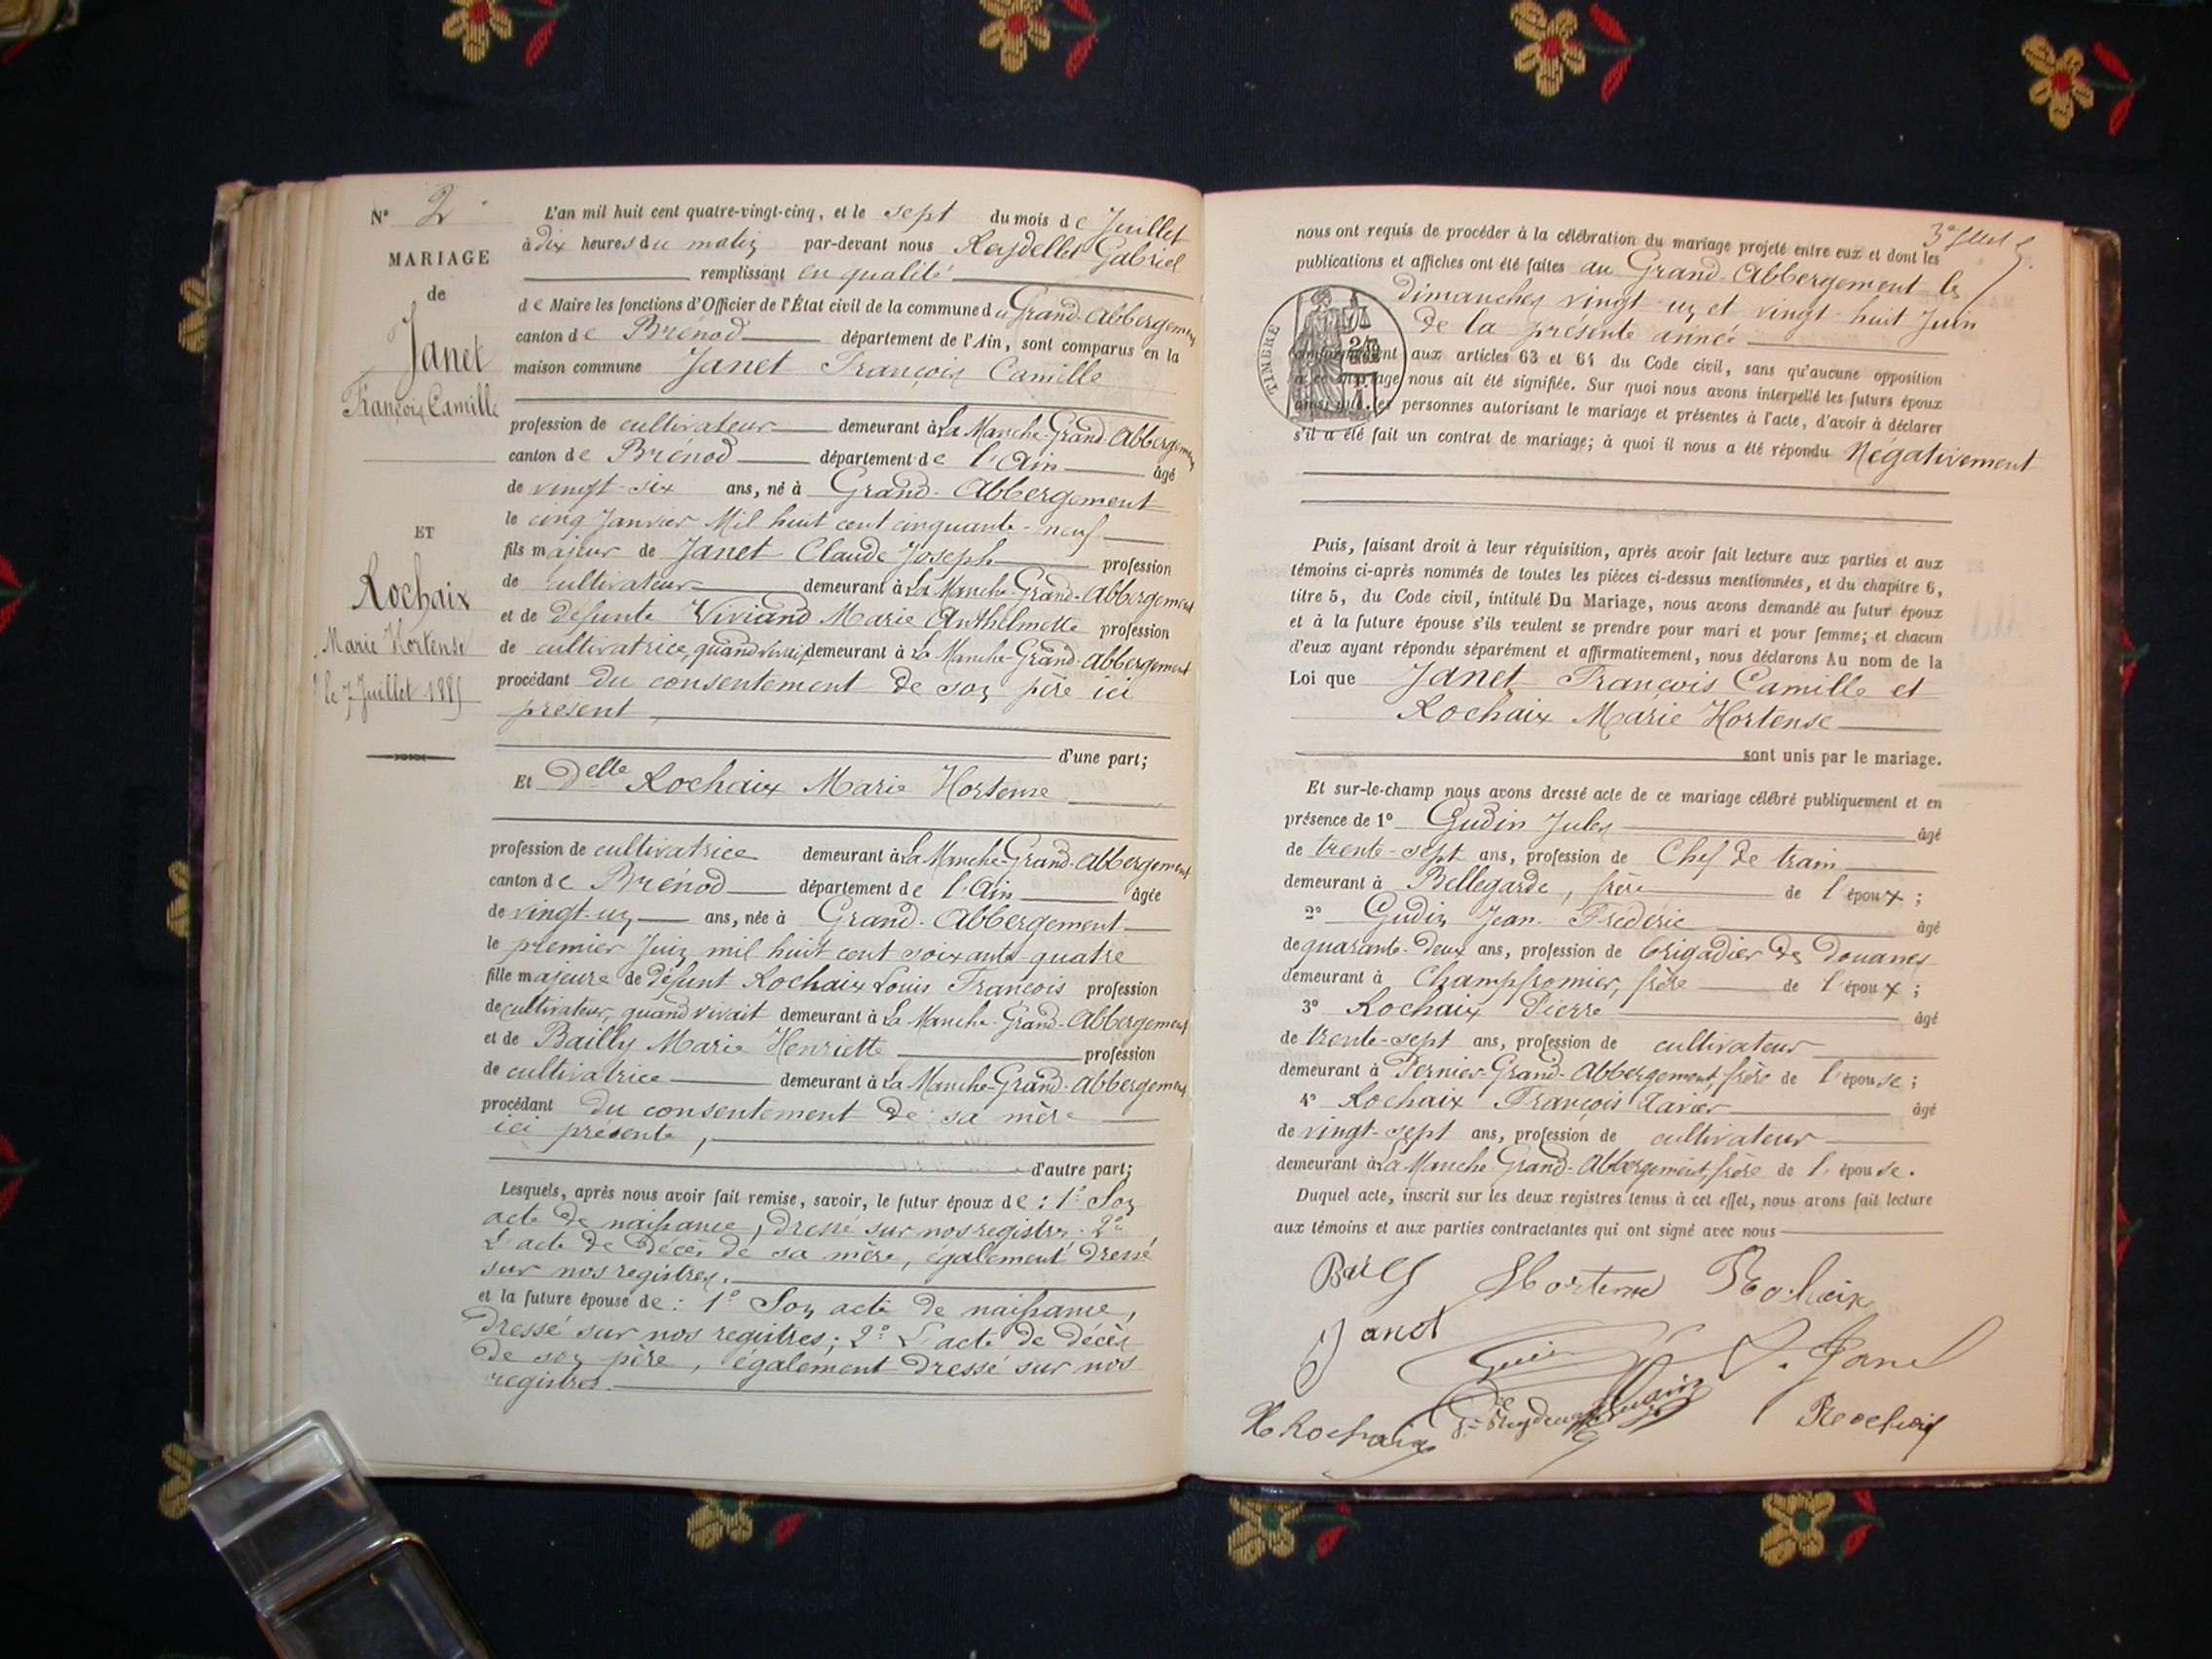 N° 2
MARIAGE
de
Janet
François Camille
ET
Rochaix
Marie Hortense
le 7 Juillet 1885
L'an mil huit cent quatre-vingt-cinq, et le sept du mois de Juillet
à dix heures du matin par-devant nous Reydellet Gabriel
remplissant en qualité
de Maire les fonctions d'Officier de l'État civil de la commune du Grand-Abbergement
canton de Brénod département de l'Ain, sont comparus en la
maison commune Janet François Camille
profession de cultivateur demeurant à La Manche-Grand-Abbergement
canton de Brénod département de l'Ain âgé
de vingt-six ans, né à Grand-Abbergement
le cinq Janvier Mil huit cent cinquante-neuf
fils majeur de Janet Claude Joseph profession
de cultivateur demeurant à La Manche-Grand-Abbergement
et de défunte Viviand Marie Anthelmette profession
de cultivatrice, quand vivait, demeurant à La Manche-Grand-Abbergement
procédant du consentement de son père ici
présent,
d'une part;
Et Delle Rochaix Marie Hortense
profession de cultivatrice demeurant à La Manche-Grand-Abbergement
canton de Brénod département de l'Ain âgée
de vingt-un ans, née à Grand-Abbergement
le premier Juin mil huit cent soixante-quatre
fille majeure de défunt Rochaix Louis François profession
de cultivateur, quand vivait demeurant à La Manche-Grand-Abbergement
et de Bailly Marie Henriette profession
de cultivatrice demeurant à La Manche-Grand-Abbergement
procédant du consentement de sa mère
ici présente,
d'autre part;
Lesquels, après nous avoir fait remise, savoir, le futur époux de : 1° Son
acte de naissance, dressé sur nos registres. 2°
L'acte de décès de sa mère, également dressé
sur nos registres.
et la future épouse de : 1° Son acte de naissance,
dressé sur nos registres; 2° L'acte de décès
de son père, également dressé sur nos
registres.
nous ont requis de procéder à la célébration du mariage projeté entre eux et dont les
publications et affiches ont été faites au Grand-Abbergement les
dimanches vingt-un et vingt-huit Juin
de la présente année
TIMBRE
conformément aux articles 63 et 64 du Code civil, sans qu'aucune opposition
à ce mariage nous ait été signifiée. Sur quoi nous avons interpellé les futurs époux
ainsi que les personnes autorisant le mariage et présentes à l'acte, d'avoir à déclarer
s'il a été fait un contrat de mariage; à quoi il nous a été répondu Négativement
Puis, faisant droit à leur réquisition, après avoir fait lecture aux parties et aux
témoins ci-après nommés de toutes les pièces ci-dessus mentionnées, et du chapitre 6,
titre 5, du Code civil, intitulé Du Mariage, nous avons demandé au futur époux
et à la future épouse s'ils veulent se prendre pour mari et pour femme; et chacun
d'eux ayant répondu séparément et affirmativement, nous déclarons Au nom de la
Loi que Janet François Camille et
Rochaix Marie Hortense
sont unis par le mariage.
Et sur-le-champ nous avons dressé acte de ce mariage célébré publiquement et en
présence de 1° Gudin Jules âgé
de trente-sept ans, profession de Chef de train
demeurant à Bellegarde, frère de l'époux;
2° Gudin Jean Frédéric âgé
de quarante-deux ans, profession de brigadier des Douanes
demeurant à Champfromier, frère de l'époux;
3° Rochaix Pierre âgé
de trente-sept ans, profession de cultivateur
demeurant à Pernier-Grand-Abbergement, frère de l'épouse;
4° Rochaix François Xavier âgé
de vingt-sept ans, profession de cultivateur
demeurant à La Manche Grand-Abbergement, frère de l'épouse.
Duquel acte, inscrit sur les deux registres tenus à cet effet, nous avons fait lecture
aux témoins et aux parties contractantes qui ont signé avec nous
Hortense Rochaix
Janet
Janet
X Rochaix
Rochaix